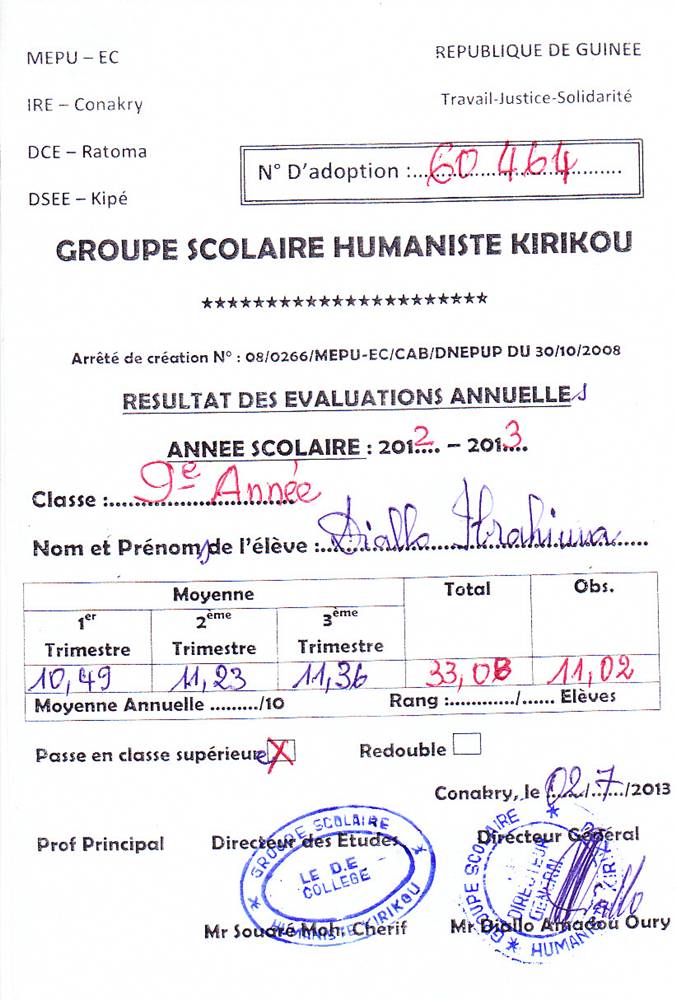 MEPU – EC
REPUBLIQUE DE GUINEE
IRE – Conakry
Travail-Justice-Solidarité
DCE – Ratoma
N° D'adoption :...60 464.........
DSEE – Kipé
GROUPE SCOLAIRE HUMANISTE KIRIKOU
**********************
Arrêté de création N° : 08/0266/MEPU-EC/CAB/DNEPUP DU 30/10/2008
RESULTAT DES EVALUATIONS ANNUELLEs
ANNEE SCOLAIRE : 2012 – 2013
Classe :......9e Année
Nom et Prénoms de l'élève :...Diallo Ibrahima......
Moyenne Total Obs.
1er Trimestre 2ème Trimestre 3ème Trimestre
10,49 11,23 11,36 33,08 11,02
Moyenne Annuelle ........./10 Rang :............/...... Elèves
Passe en classe supérieure X Redouble
Conakry, le 02/7/2013
Prof Principal Directeur des Etudes Directeur Général
GROUPE SCOLAIRE
LE D.E
COLLEGE
HUMANISTE KIRIKOU
GROUPE SCOLAIRE
DIRECTEUR
GENERAL
Diallo
Mr Souaré Moh. Cherif Mr Diallo Amadou Oury